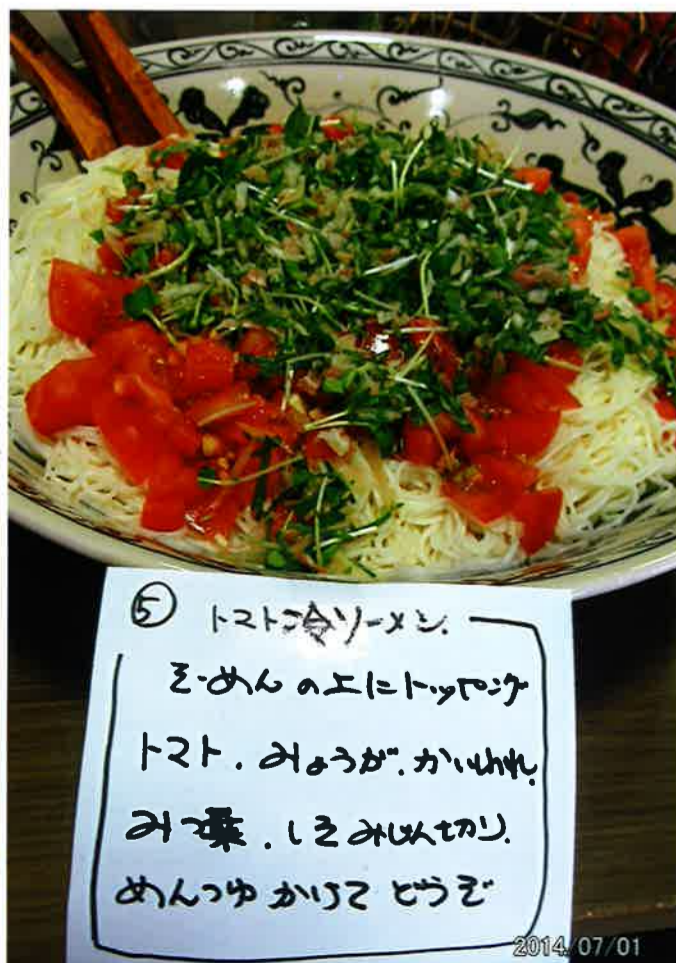 ⑤ トマト冷ソーメン.
そーめんの上にトッピング
トマト.みょうが.かいわれ.
みつ葉.しそみじん切り.
めんつゆかけてどうぞ
2014/07/01